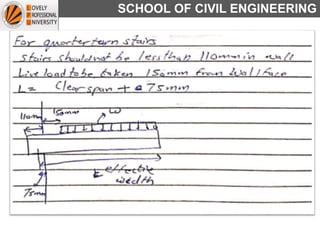 LOVELY
PROFESSIONAL
UNIVERSITY
SCHOOL OF CIVIL ENGINEERING
For quarter turn stairs
Stairs should not be less than 110mm in wall
Live load to be taken 150mm from wall face
L = Clear span + 75mm
110mm
150mm
w
L effective
width
75mm